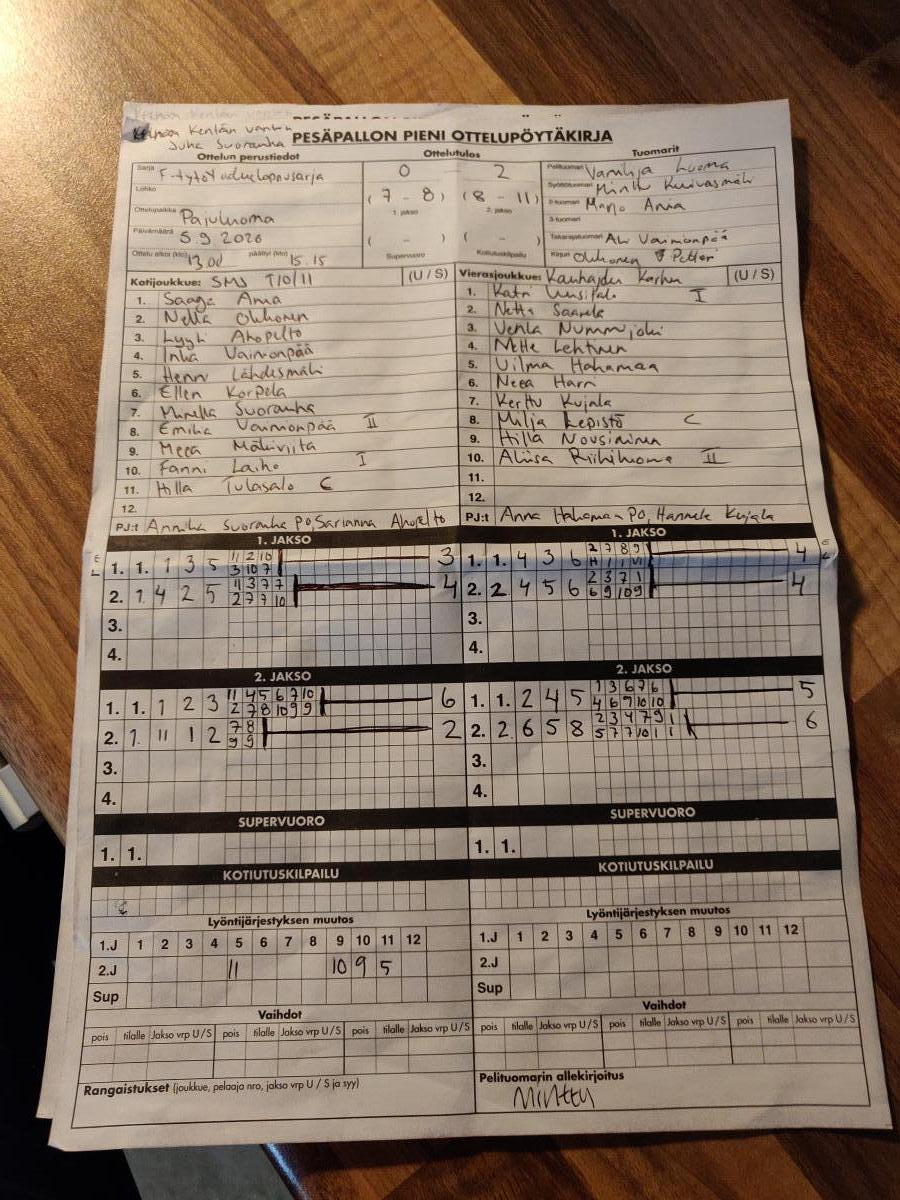 Kentän vanhin
Juha Suoranha
PESÄPALLON PIENI OTTELUPÖYTÄKIRJA
Ottelun perustiedot
Ottelutulos
Tuomarit
Sarja F-tytöt
Lohko
Ottelupaikka Pajuluoma
Päivämäärä 5.9 2020
Ottelu alkoi (klo) 13.00 päättyi (klo) 15.15
0 - 2
(7 - 8) (8 - 11)
1. jakso 2. jakso
( - ) ( - )
Supervuoro Kotiutuskilpailu
Pelituomari Luoma
Syöttötuomari
2-tuomari Marjo Ania
3-tuomari
Takarajatuomari Vainionpää
Kirjuri Okkonen Petteri
Kotijoukkue: SMS T10/11 (U / S)
1. Saaga Ania
2. Nella Okkonen
3. Lyyli Ahopelto
4. Inka Vainionpää
5. Henni Lähdesmäki
6. Ellen Korpela
7. Mirella Suoranha
8. Emilia Vainionpää II
9. Meea Mäkiviita
10. Fanni Laiho I
11. Hilla Tulasalo C
12.
PJ:t Annika Suoranha PO, Sarianna Ahopelto
Vierasjoukkue: Kauhajoen Karhu (U / S)
1. Katri Uusitalo I
2. Netta Saarela
3. Venla Nummijoki
4. Nette Lehtinen
5. Vilma Hahamaa
6. Neea Harri
7. Kerttu Kujala
8. Milja Lepistö C
9. Hilla Nousiainen
10. Aliisa Riihiluoma II
11.
12.
PJ:t Anna Hahamaa PO, Hannele Kujala
1. JAKSO
1. 1. 1 3 5 11 2 10 3
3 10 7
2. 1 4 2 5 11 3 7 7 4
2 7 7 10
3.
4.
1. JAKSO
1. 1. 4 3 6 2 7 8 9 4
2. 2 4 5 6 2 3 7 1 4
6 9 10 9
3.
4.
2. JAKSO
1. 1. 1 2 3 11 4 5 6 7 10 6
2 7 8 10 9 9
2. 1. 11 1 2 7 8 2
9 9
3.
4.
2. JAKSO
1. 1. 2 4 5 1 3 6 7 6 5
4 6 9 10 10
2. 2. 6 5 8 2 3 4 7 9 1 6
5 7 7 10 1 1
3.
4.
SUPERVUORO
1. 1.
SUPERVUORO
1. 1.
KOTIUTUSKILPAILU
KOTIUTUSKILPAILU
Lyöntijärjestyksen muutos
1.J 1 2 3 4 5 6 7 8 9 10 11 12
2.J 11 10 9 5
Sup
Lyöntijärjestyksen muutos
1.J 1 2 3 4 5 6 7 8 9 10 11 12
2.J
Sup
Vaihdot
pois tilalle Jakso vrp U/S pois tilalle Jakso vrp U/S pois tilalle Jakso vrp U/S
Vaihdot
pois tilalle Jakso vrp U/S pois tilalle Jakso vrp U/S pois tilalle Jakso vrp U/S
Rangaistukset (joukkue, pelaaja nro, jakso vrp U / S ja syy)
Pelituomarin allekirjoitus
Minttu